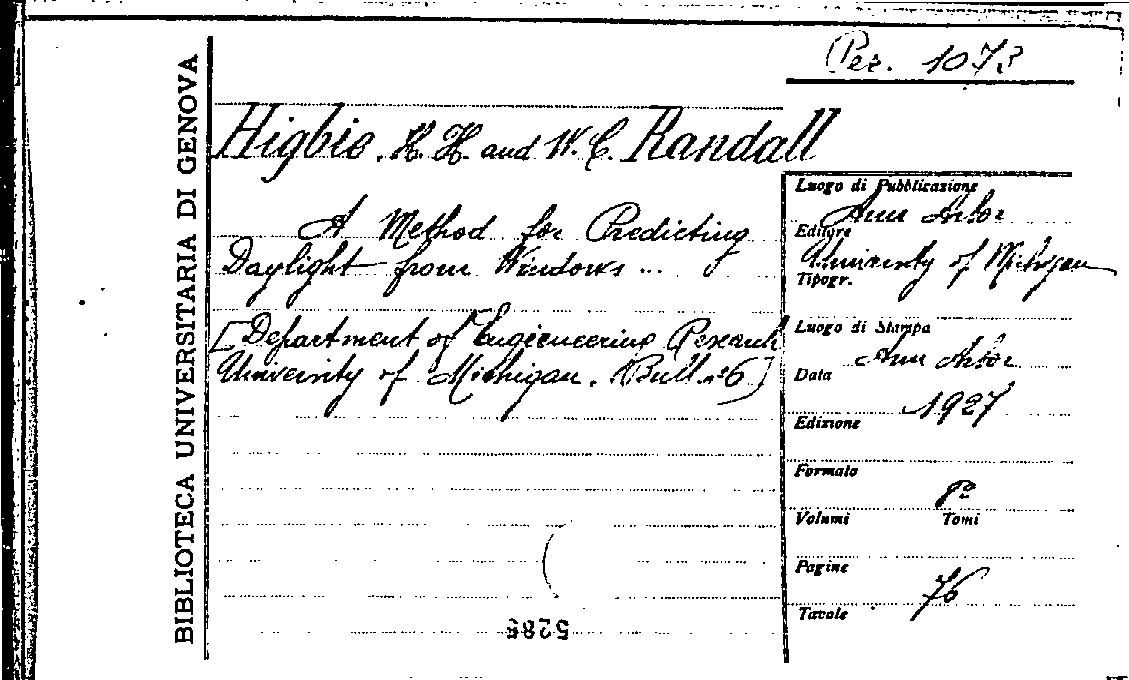 Per. 1073
BIBLIOTECA UNIVERSITARIA DI GENOVA
Higbie, H. H. and W. C. Randall
A Method for Predicting
Daylight from Windows ...
[Department of Engieneering Research
University of Michigan. Bull. nº 6]
Luogo di Pubblicazione
Ann Arbor
Editore
University of Michigan
Tipogr.
Luogo di Stampa
Ann Arbor
Data
1927
Edizione
Formato
8º
Volumi Tomi
Pagine
76
Tavole